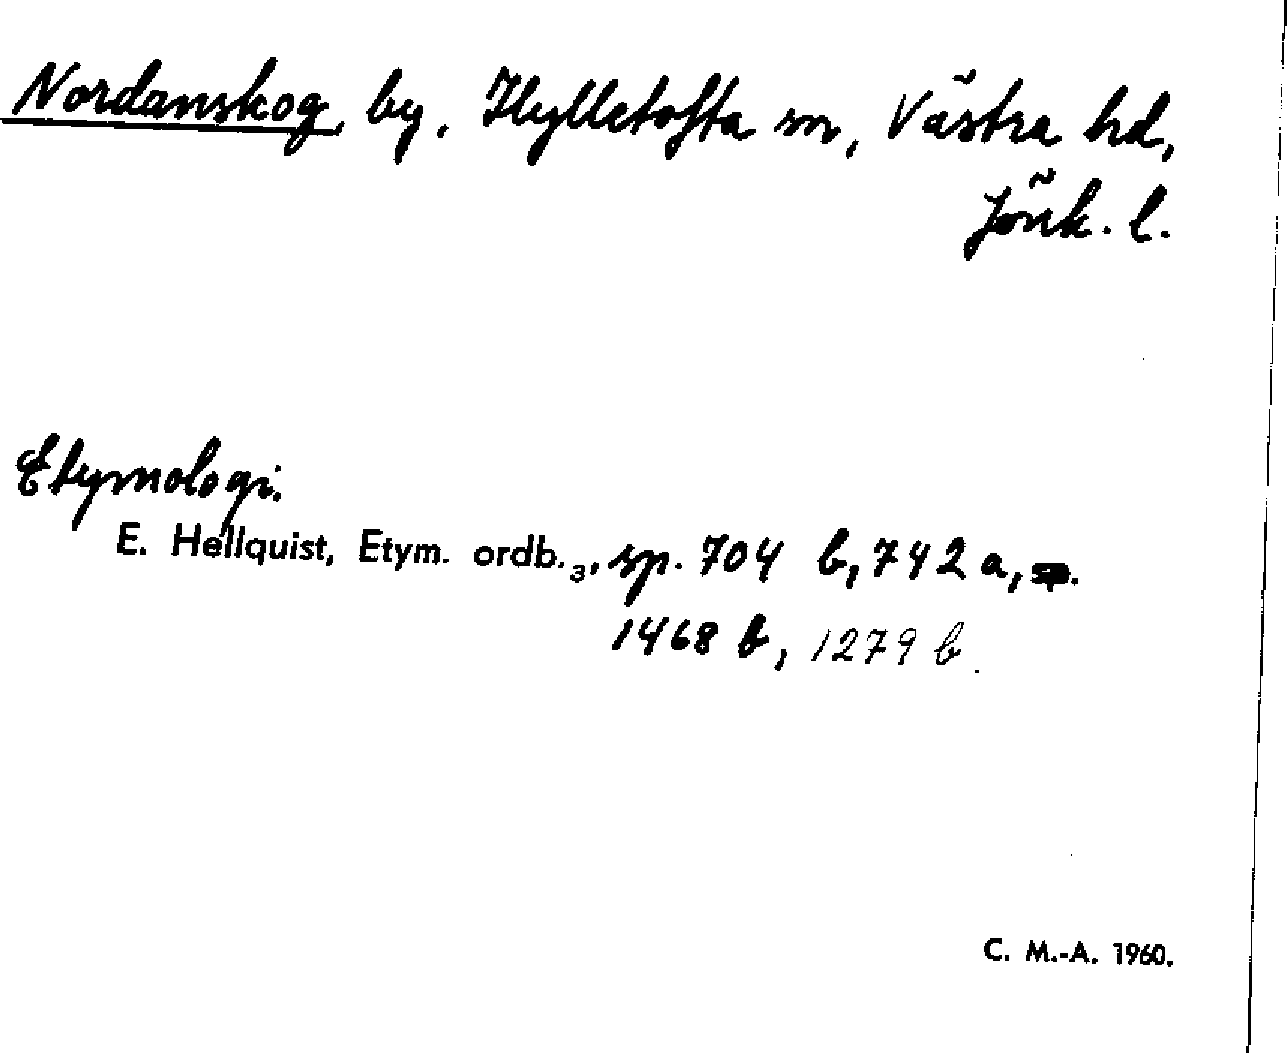 Nordanskog, by, Hylletofta sn, Västra hd,
Jönk. l.
Etymologi.
E. Hellquist, Etym. ordb.₃, sp. 704 b, 742 a,
1468 b, 1279 b.
C. M.-A. 1960.